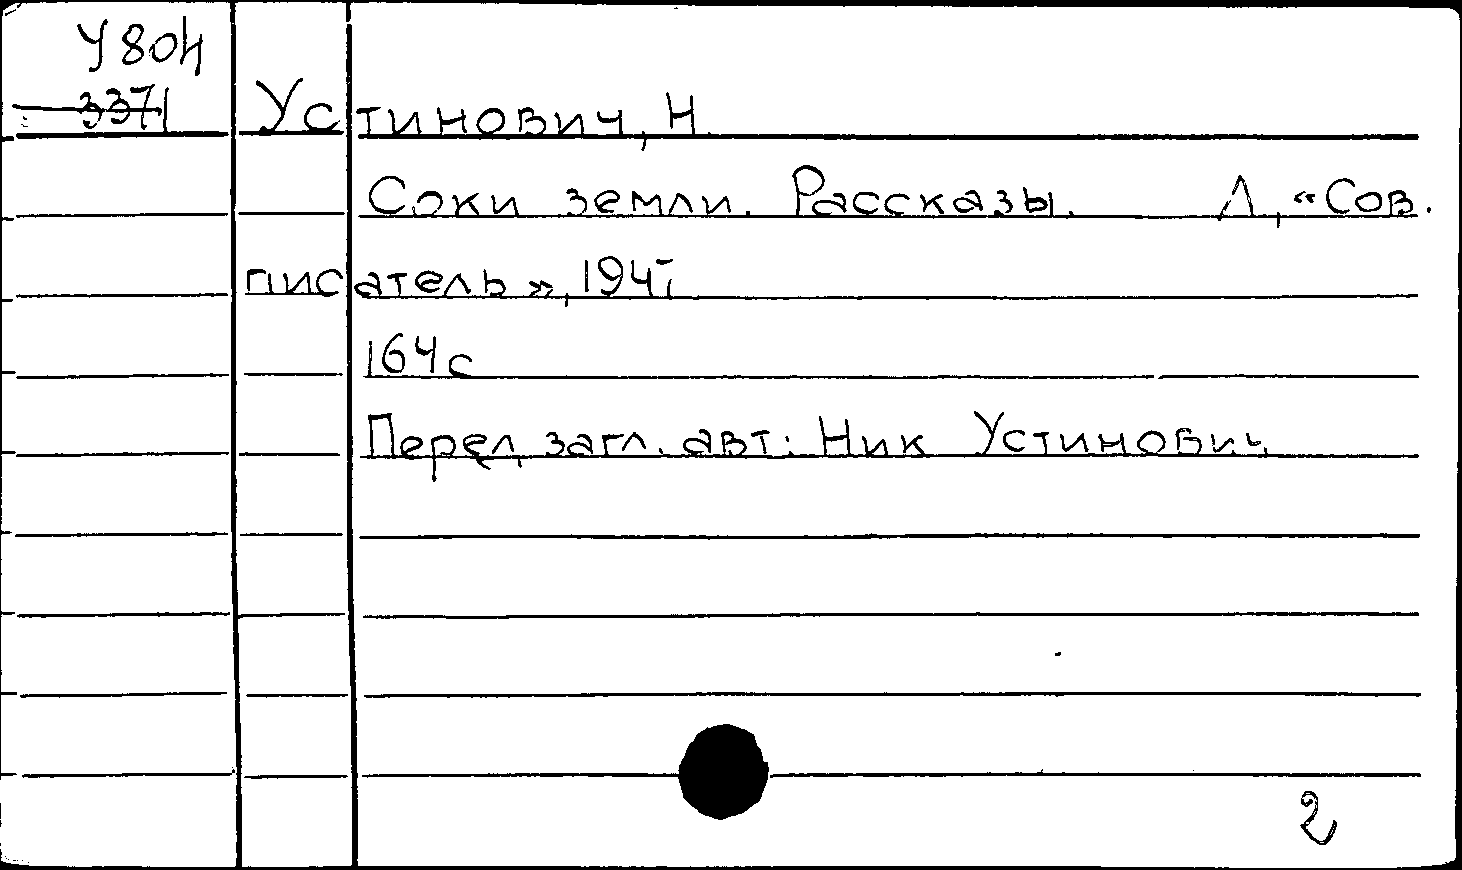 У804
3371
Устинович, Н.
Соки земли. Рассказы. Л, «Сов.
писатель», 1947
164 с
Перед загл. авт: Ник Устинович
2